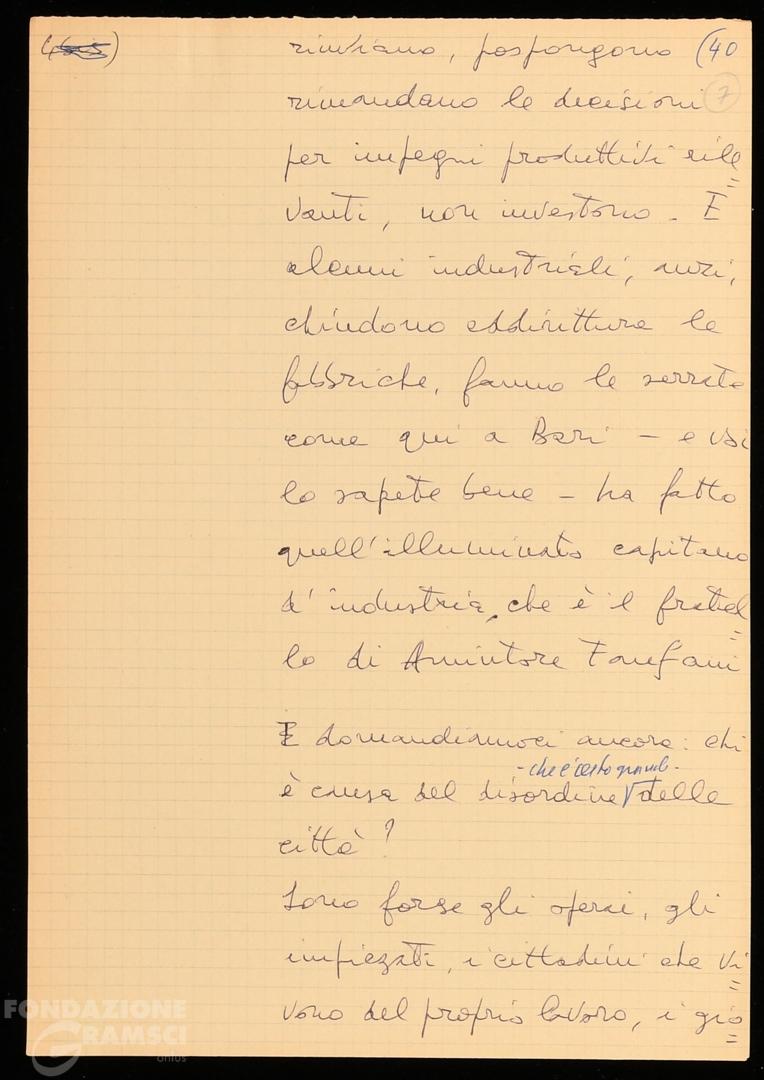 rinviano, pospongono (40
rimandano le decisioni 7
per impegni produttivi rile=
vanti, non investono. E
alcuni industriali, anzi,
chiudono addirittura le
fabbriche, fanno le serrate
come qui a Bari - e voi
lo sapete bene - ha fatto
quell'illuminato capitano
d'industria, che è il fratel=
lo di Amintore Fanfani
E domandiamoci ancora: chi
- che è certo grande -
è causa del disordine delle
città?
Sono forse gli operai, gli
impiegati, i cittadini che vi=
vono del proprio lavoro, i gio=
FONDAZIONE
GRAMSCI
onlus